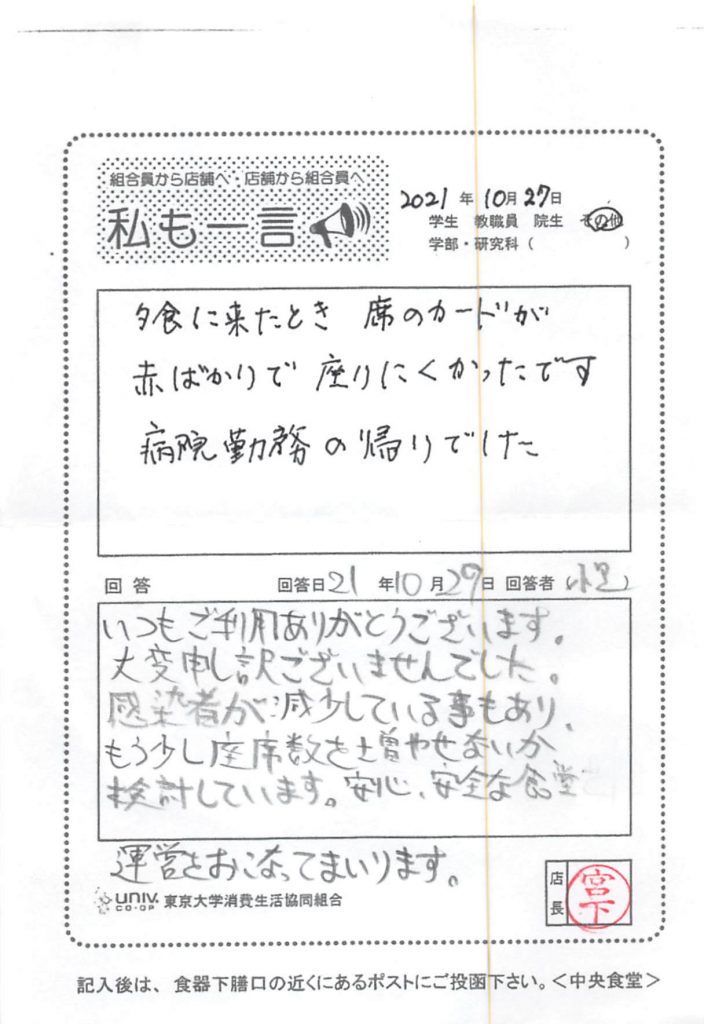 組合員から店舗へ・店舗から組合員へ
私も一言
2021 年 10月 27日
学生 教職員 院生 その他
学部・研究科 ( )
夕食に来たとき 席のカードが
赤ばかりで 座りにくかったです
病院勤務の帰りでした
回答 回答日21 年10月29日 回答者 ( )
いつもご利用ありがとうございます。
大変申し訳ございませんでした。
感染者が減少している事もあり、
もう少し座席数を増やせないか
検討しています。安心、安全な食堂
運営をおこなってまいります。
UNIV. CO-OP 東京大学消費生活協同組合
店長 宮下
記入後は、食器下膳口の近くにあるポストにご投函下さい。＜中央食堂＞